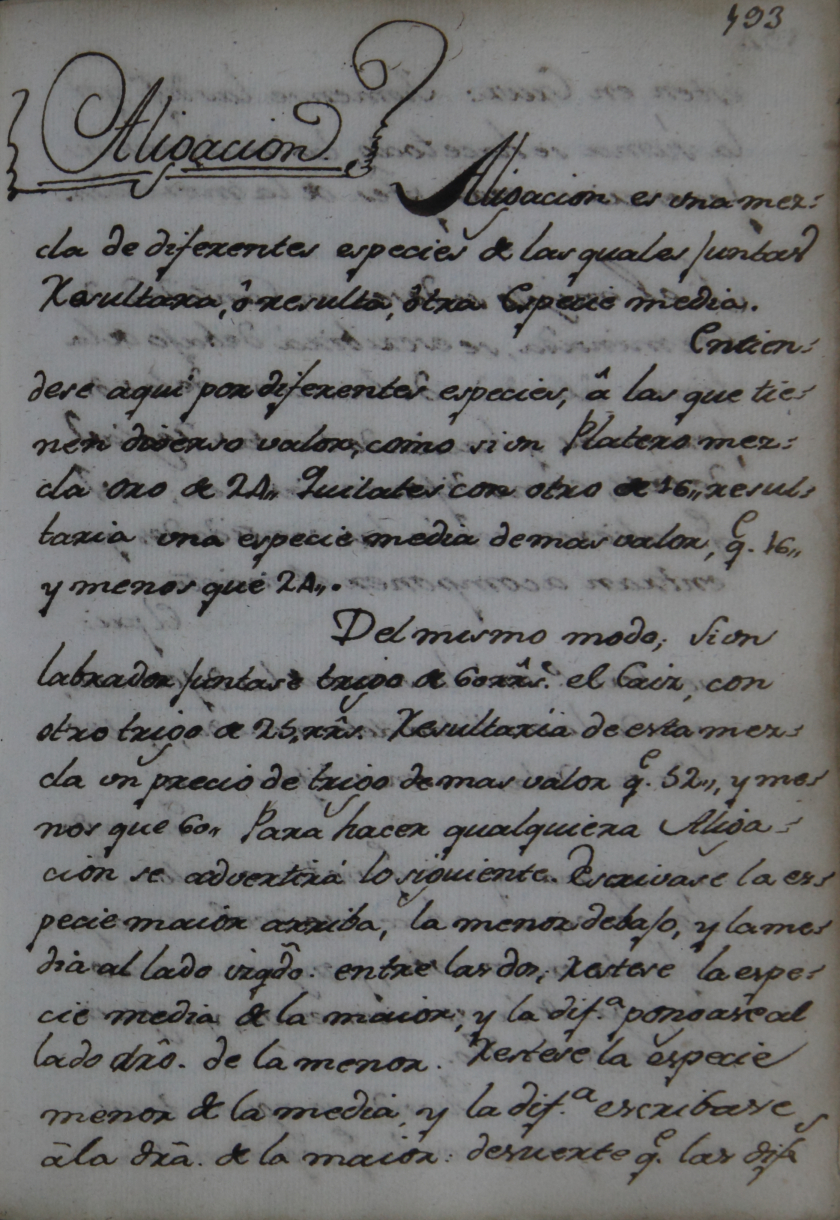 193
Aligacion.
Aligacion es vna mez:
cla de diferentes especies de las quales juntas
Resultara, ô resulta, ôtra Especie media.
Entien:
dese aqui por diferentes especies, â las que tie:
nen diverso valor, como si vn Platero mez:
cla oro de 24,, Quilates con otro de 16,, resul:
taria vna especie media de mas valor, q.e 16,,
y menos que 24,,.
Del mismo modo, si vn
labrador juntase trigo de 60 rr̂s. el Caiz, con
otro trigo de 25,, rr̂s. Resultaria de esta mez:
cla vn precio de trigo de mas valor q.e 52,, y me:
nos que 60,, Para hacer qualquiera Aliga:
cion se advertirá lo siguiente. Escrivase la es:
pecie maior arriba, la menor debajo, y la me:
dia al lado yzqdo. entre las dos, Restese la espe:
cie media de la maior, y la dif.a pongase al
lado drô. de la menor. Restese la especie
menor de la media, y la dif.a escribase
â la drâ. de la maior: desuerte q.e las dif.s